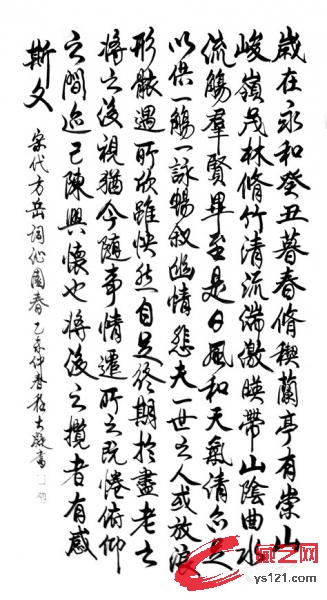 歲在永和癸丑暮春脩禊蘭亭有崇山
峻嶺茂林脩竹清流湍激暎帶山陰曲水
流觴羣賢畢至是日風和天氣清亦足
以供一觴一詠暢叙幽情悲夫一世之人或放浪
形骸遇所欣雖快然自足終期於盡老之
將之後視猶今隨事情遷所之既惓俯仰
之間迹已陳興懷也將後之攬者有感
斯文
宋代方岳詞沁園春 乙未仲春 書
藏艺网
ys121.com